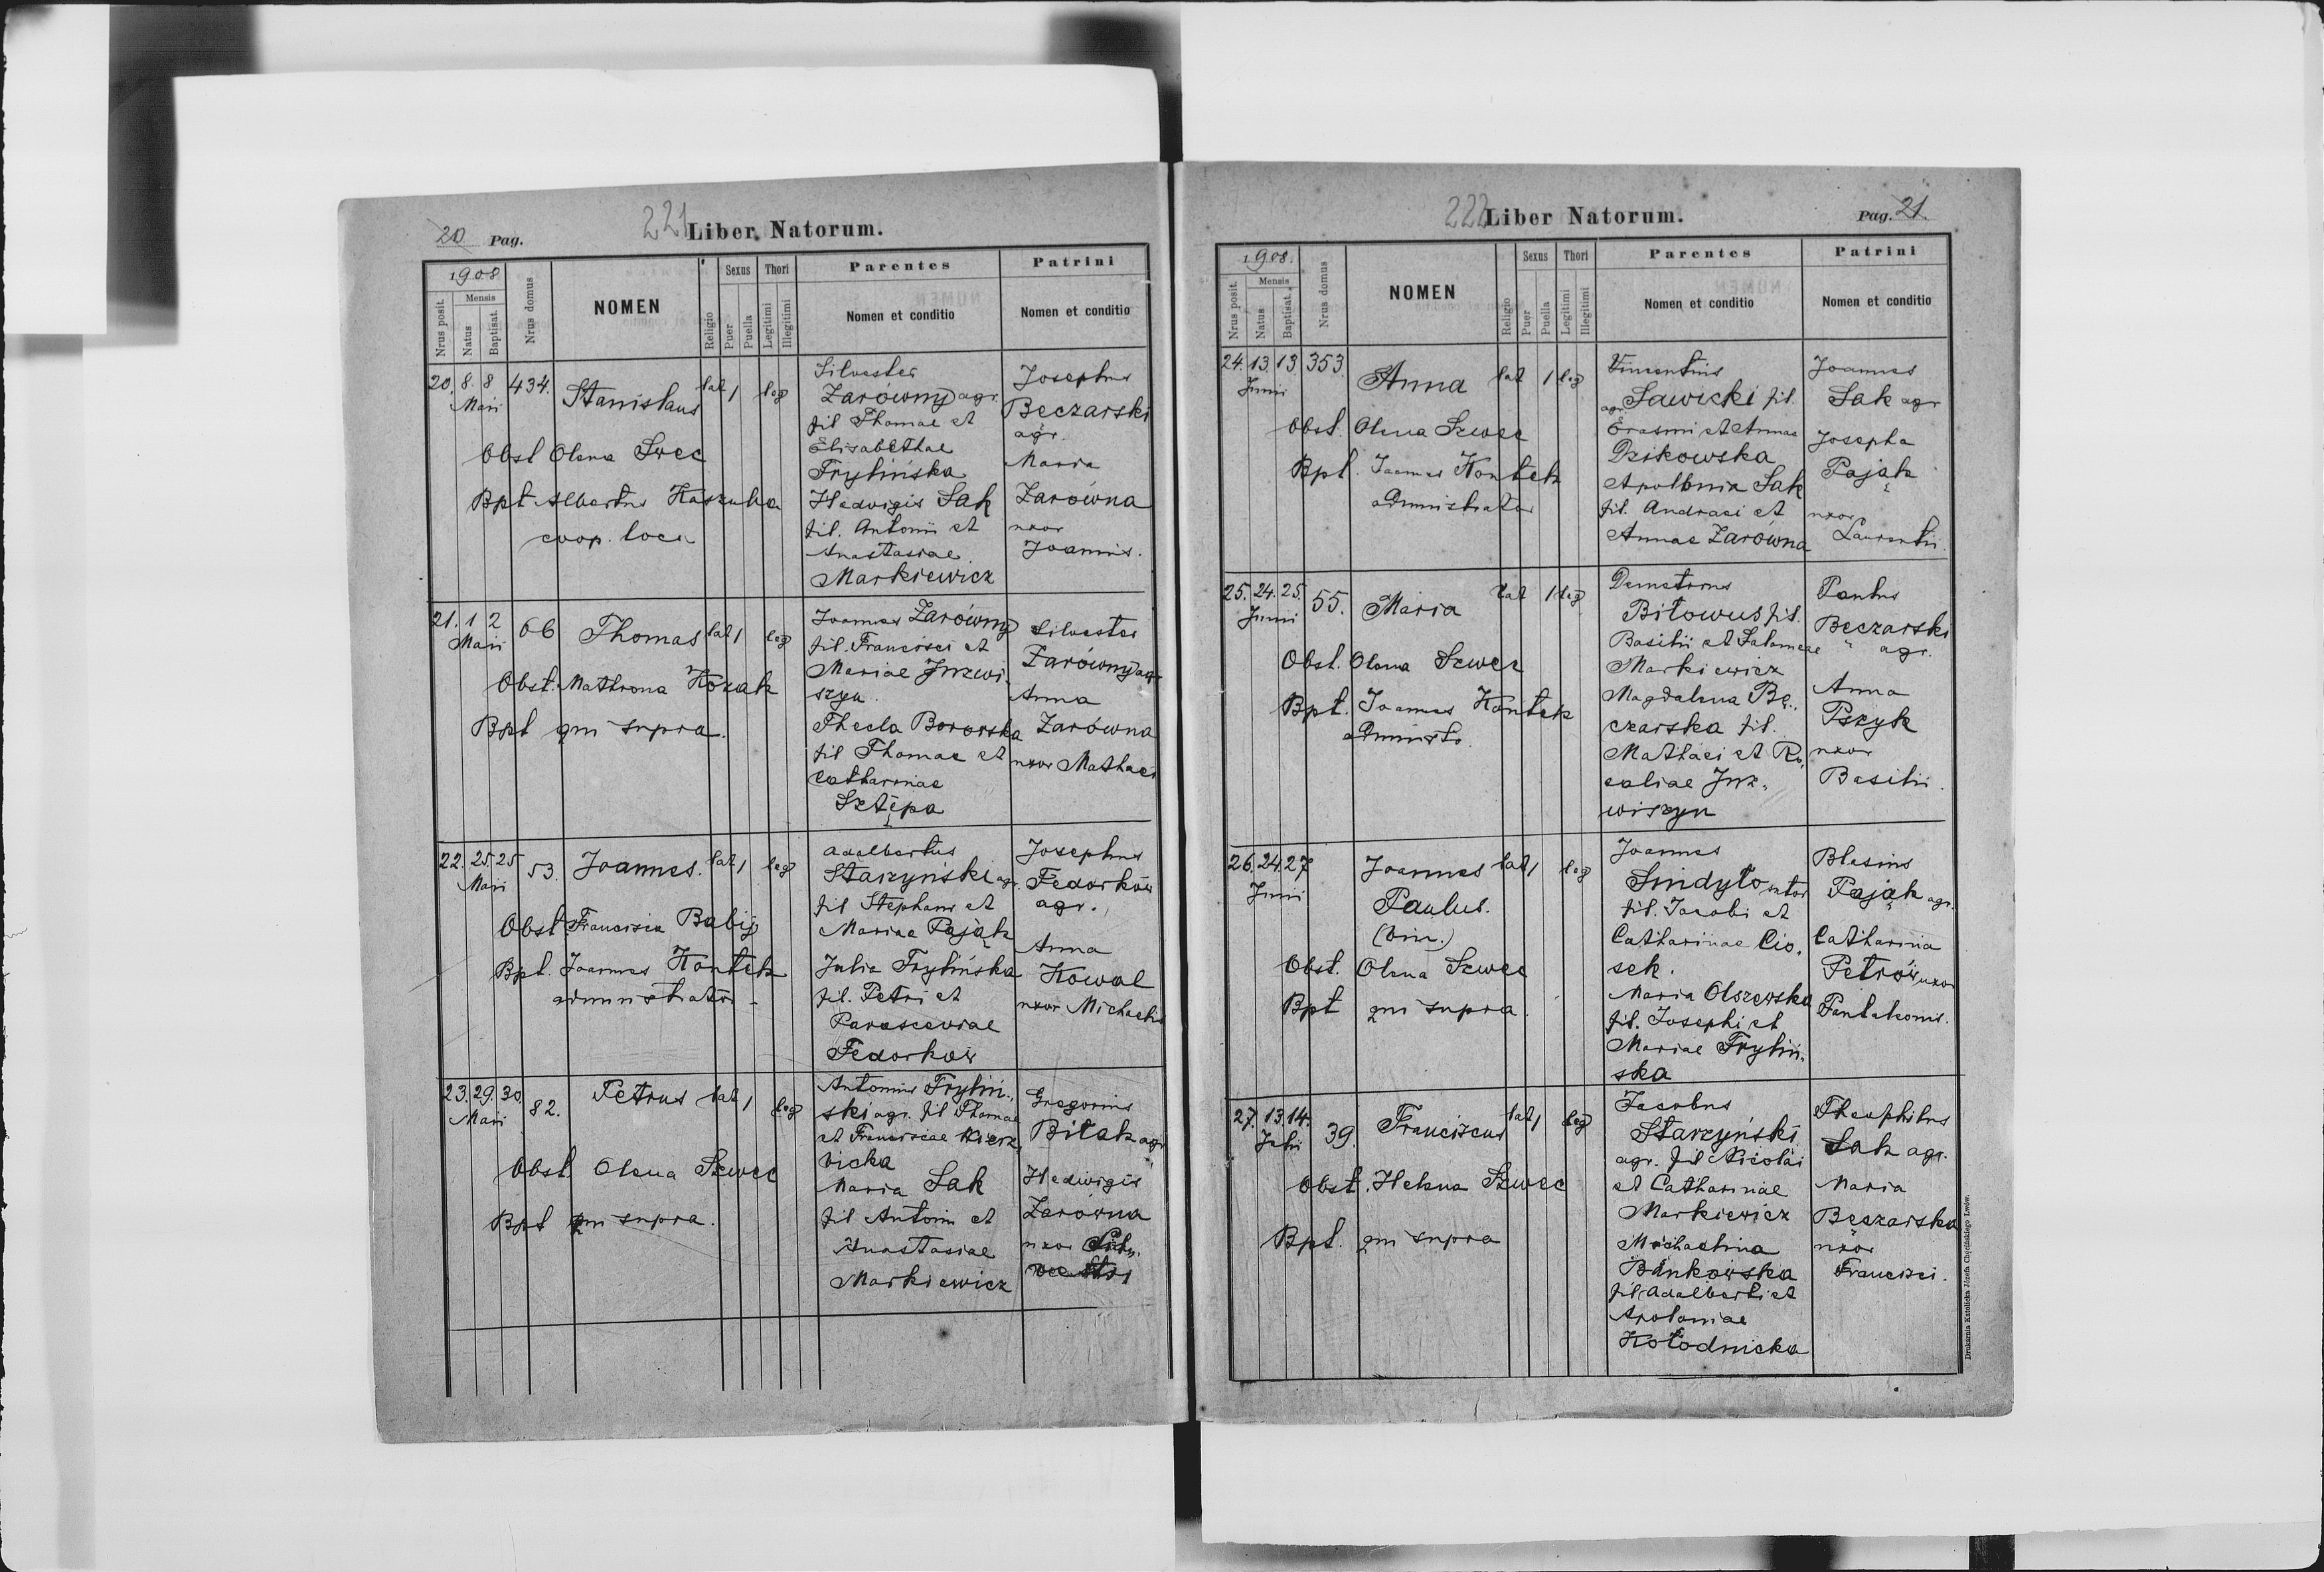 20 Pag.
221
Liber Natorum.
1908
Nrus posit.
Mensis
Natus
Baptisat.
Nrus domus
NOMEN
Religio
Sexus
Puer
Puella
Thori
Legitimi
Illegitimi
Parentes
Nomen et conditio
Patrini
Nomen et conditio
20. 8. 8 434. Stanislaus lat 1 leg
Maii
Obst Olena Swec
Bpt Albertus Kaszuba
coop. loci
Silvester
Zarówny agr.
fil Thomae et
Elisabethae
Trylińska
Hedvigis Sak
fil. Antonii et
Anastasiae
Markiewicz
Josephus
Beczarski
agr.
Maria
Zarówna
uxor
Joannis.
21. 1 2 66 Thomas lat 1 leg
Maii
Obst. Mathrona Kozak
Bpt qui supra.
Joannes Zarówny
fil. Francisci et
Mariae Juzwi
szyn.
Thecla Borowska
fil Thomae et
Catharinae
Sztępa
Silvester
Zarówny agr
Anna
Zarówna
uxor Mathaei
22. 25. 25 53. Joannes. lat 1 leg
Maii
Obst Francisca Babij
Bpt. Joannes Kontek
administrator
Adalbertus
Starzyński agr.
fil Stephani et
Mariae Pająk
Julia Trylińska
fil. Petri et
Parasceviae
Fedorków
Josephus
Fedorków
agr.
Anna
Kowal
uxor Michaelis
23. 29. 30. 82. Petrus lat 1 leg
Maii
Obst. Olena Szwec
Bpt qui supra.
Antonius Tryliń-
ski agr. fil Thomae
et Franciscae
vicka
Maria Sak
fil Antonii et
Anastasiae
Markiewicz
Gregorius
Bilak agr
Hedwigis
Zarówna
uxor Silv.
222
Liber Natorum.
Pag. 21.
1908.
Nrus posit.
Mensis
Natus
Baptisat.
Nrus domus
NOMEN
Religio
Sexus
Puer
Puella
Thori
Legitimi
Illegitimi
Parentes
Nomen et conditio
Patrini
Nomen et conditio
24. 13. 13 353. Anna lat 1 leg
Junii
Obst. Olena Szwec
Bpt. Joannes Kontek
administrator
Vincentius
agr. Sawicki fil.
Erasmi et Annae
Dzikowska
Apollonia Sak
fil. Andraei et
Annae Zarówna
Joannes
Sak agr
Josepha
Pająk
uxor
Laurentii.
25. 24. 25. 55. Maria lat 1 leg
Junii
Obst. Olena Szwec
Bpt. Joannes Kontek
Demetrius
Bitowus fil.
Basilii et Salomeae
Markiewicz
Magdalena Bę-
czarska fil.
Mathaei et Ro-
saliae Juz-
wiszyn
Paulus
Beczarski
agr.
Anna
Pszyk
uxor
Basilii.
26. 24. 27 Joannes lat 1 leg
Junii
Paulus.
(bin.)
Obst. Olena Szwec
Bpt qui supra.
Joannes
Smdyto sutor
fil. Jacobi et
Catharinae Cio-
sek.
Maria Olszewska
fil. Josephi et
Mariae Tryliń-
ska
Blasius
Pająk agr.
Catharina
Petrów uxor
Pantaleonis.
27. 13. 14. 39. Franciscus lat 1 leg
Julii
Obst. Helena Szwec
Bpt. qui supra
Jacobus
Starzyński
agr. fil Nicolai
et Catharinae
Markiewicz
Michaelina
Bankowska
fil Adalberti et
Apoloniae
Kołodnicka
Theophilus
Sak agr.
Maria
Bęczarska
uxor
Francisci.
Drukarnia Katolicka Józefa Chęcińskiego Lwów.